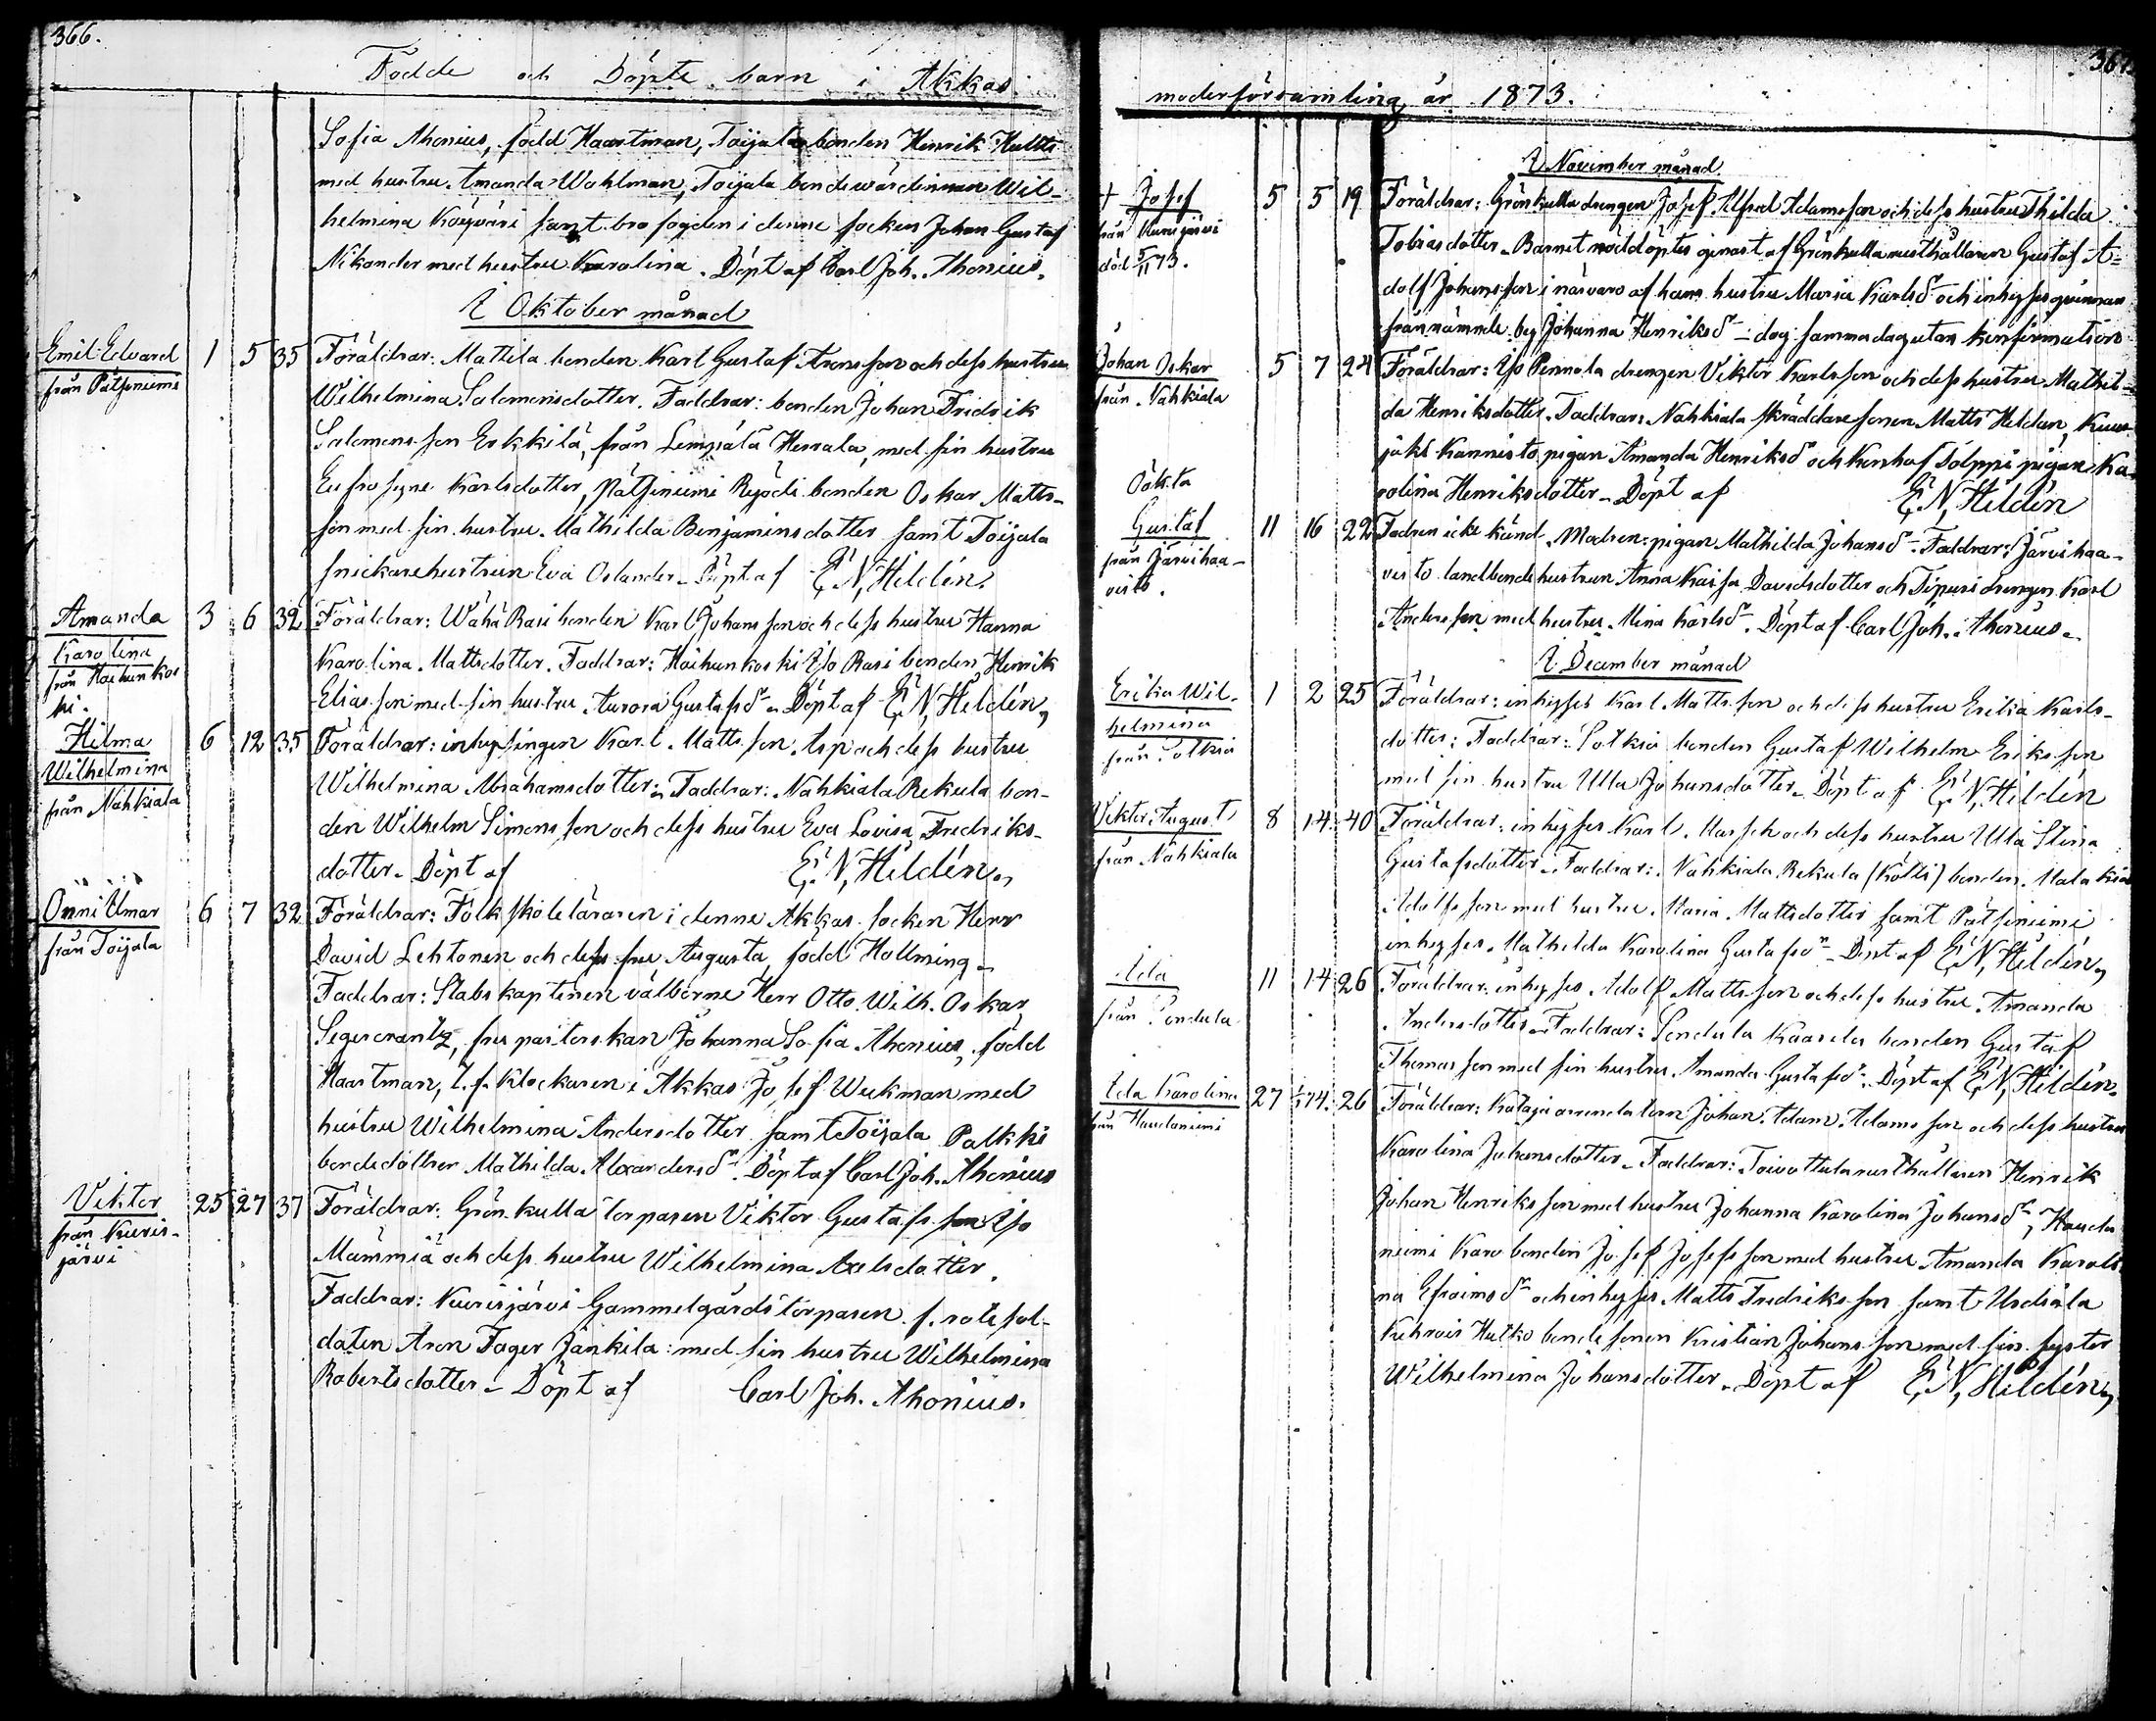 366.
Födde och Döpte barn i Akkas
Sofia Ahonius, född Haartman, Toijala bonden Henrik Hultti
med hustru Amanda Wahlman, Toijala bondewärdinnan Wil-
helmina Köijväri samt brofogden i denne socken Johan Gustaf
Nikander med hustru Karolina. Döpt af Carl Joh. Ahonius.
I Oktober månad
Emil Edvard 1 5 35 Föräldrar: Mattila bonden Karl Gustaf Aronsson och dess hustru
från Pätsiniemi
Wilhelmina Salomonsdotter. Faddrar: bonden Johan Fredrik
Salomonsson Erkkilä, från Lempälä Herrala, med sin hustru
Eufrosyne Karlsdotter, Pätsiniemi Ryödi bonden Oskar Matts-
son med sin hustru Mathilda Benjaminsdotter samt Toijala
snickarehustrun Eva Oslander. Döpt af E. N. Hildén.
Amanda 3 6 32 Föräldrar: Wähä Rasi bonden Karl Johansson och dess hustru Hanna
Karolina
från Hoihunkos
ki.
Karolina Mattsdotter. Faddrar: Hoihunkoski Iso Rasi bonden Henrik
Eliasson med sin hustru Aurora Gustafsdr. Döpt af E. N. Hildén,
Hilma 6 12 35 Föräldrar: inhysingen Karl Mattsson Asp och dess hustru
Wilhelmina
från Nahkiala
Wilhelmina Abrahamsdotter. Faddrar: Nahkiala Rekula bon-
den Wilhelm Simonsson och dess hustru Eva Lovisa Fredriks-
dotter. Döpt af E. N. Hildén,
Onni Ilmar 6 7 32 Föräldrar: Folkskoleläraren i denne Akkas socken Herr
från Toijala
David Lehtonen och dess fru Augusta, född Hollming.
Faddrar: Stabskaptenen välborne Herr Otto Wilh. Oskar
Segercrantz, fru pastorskan Johanna Sofia Ahonius, född
Haartman, t.f. klockaren i Akkas Josef Wekman med
hustru Wilhelmina Andersdotter samt Toijala Palkki
bondedottren Mathilda Alexandersdr. Döpt af Carl Joh. Ahonius
Viktor 25 27 37 Föräldrar: Grönkulla torparen Viktor Gustafsson Iso
från Kuris-
järvi
Mämmiä och dess hustru Wilhelmina Axelsdotter.
Faddrar: Kuurisjärvi Gammelgårds torparen f. rotesol-
daten Aron Fager Jankila med sin hustru Wilhelmina
Robertsdotter. Döpt af Carl Joh. Ahonius.
367.
moderförsamling år 1873.
I November månad
+ Josef 5 5 19 Föräldrar: Grönkulla drengen Josef Alfred Adamsson och dess hustru Thilda
från Kurisjärvi
död 5/11 73.
Tobiasdotter. Barnet nöddöptes genast af Grönkulla rusthållaren Gustaf A-
dolf Johansson i närvaro af hans hustru Maria Karlsdr och inhysesqvinnan
från nämnde by Johanna Henriksdr - dog samma dag utan konfirmation
Johan Oskar 5 7 24 Föräldrar: Iso Pennola drengen Viktor Karlsson och dess hustru Mathil-
från Nahkiala
da Henriksdotter. Faddrar: Nahkiala skräddaresonen Matts Heldan,
Kannisto pigan Amanda Henriksdr och Sälppi pigan Ka-
rolina Henriksdotter. Döpt af E. N. Hildén
Oäkta
Gustaf 11 16 22 Fadren icke känd. Modren: pigan Mathilda Johansdr. Faddrar: Järvihaa-
från Järvihaa-
visto.
visto landbonde hustrun Anna Kaisa Davidsdotter och Tipuri drengen Karl
Andersson med hustru Mina Karlsdr. Döpt af Carl Joh. Ahonius.
I December månad
Erika Wil- 1 2 25 Föräldrar: inhyses Karl Mattsson och dess hustru Erika Karls-
helmina
från Sotkia
dotter: Faddrar: Sotkia bonden Gustaf Wilhelm Eriksson
med sin hustru Ulla Johansdotter. Döpt af E. N. Hildén
Viktor August 8 14 40 Föräldrar: inhyses Karl och dess hustru Ulla Stina
från Nahkiala
Gustafsdotter. Faddrar: Nahkiala Rekula (Kötti) bonden Malakia
Adolfsson med hustru Maria Mattsdotter samt Pätsiniemi
inhyses Mathilda Karolina Gustafsdr. Döpt af E. N. Hildén,
Ida 11 14 26 Föräldrar: inhyses Adolf Mattsson och dess hustru Amanda
från Pondula
Andersdotter. Faddrar: Kaarela bonden Gustaf
Thomasson med sin hustru Amanda Gustafsdr. Döpt af E. N. Hildén.
Ida Karolina 27 1/1 74. 26 Föräldrar: Kataja arrendatorn Johan Adam Adamsson och dess hustru
från Haudaniemi
Karolina Johansdotter. Faddrar: Toivottula rusthållaren Henrik
Johan Henriksson med hustru Johanna Karolina Johansdr, Hauda
niemi Karo bonden Josef Josefsson med hustru Amanda Karoli
na Efraimsdr och inhyses Matts Fredriksson samt Urdiala
Hutko bondesonen Kristian Johansson med sin syster
Wilhelmina Johansdotter. Döpt af E. N. Hildén,